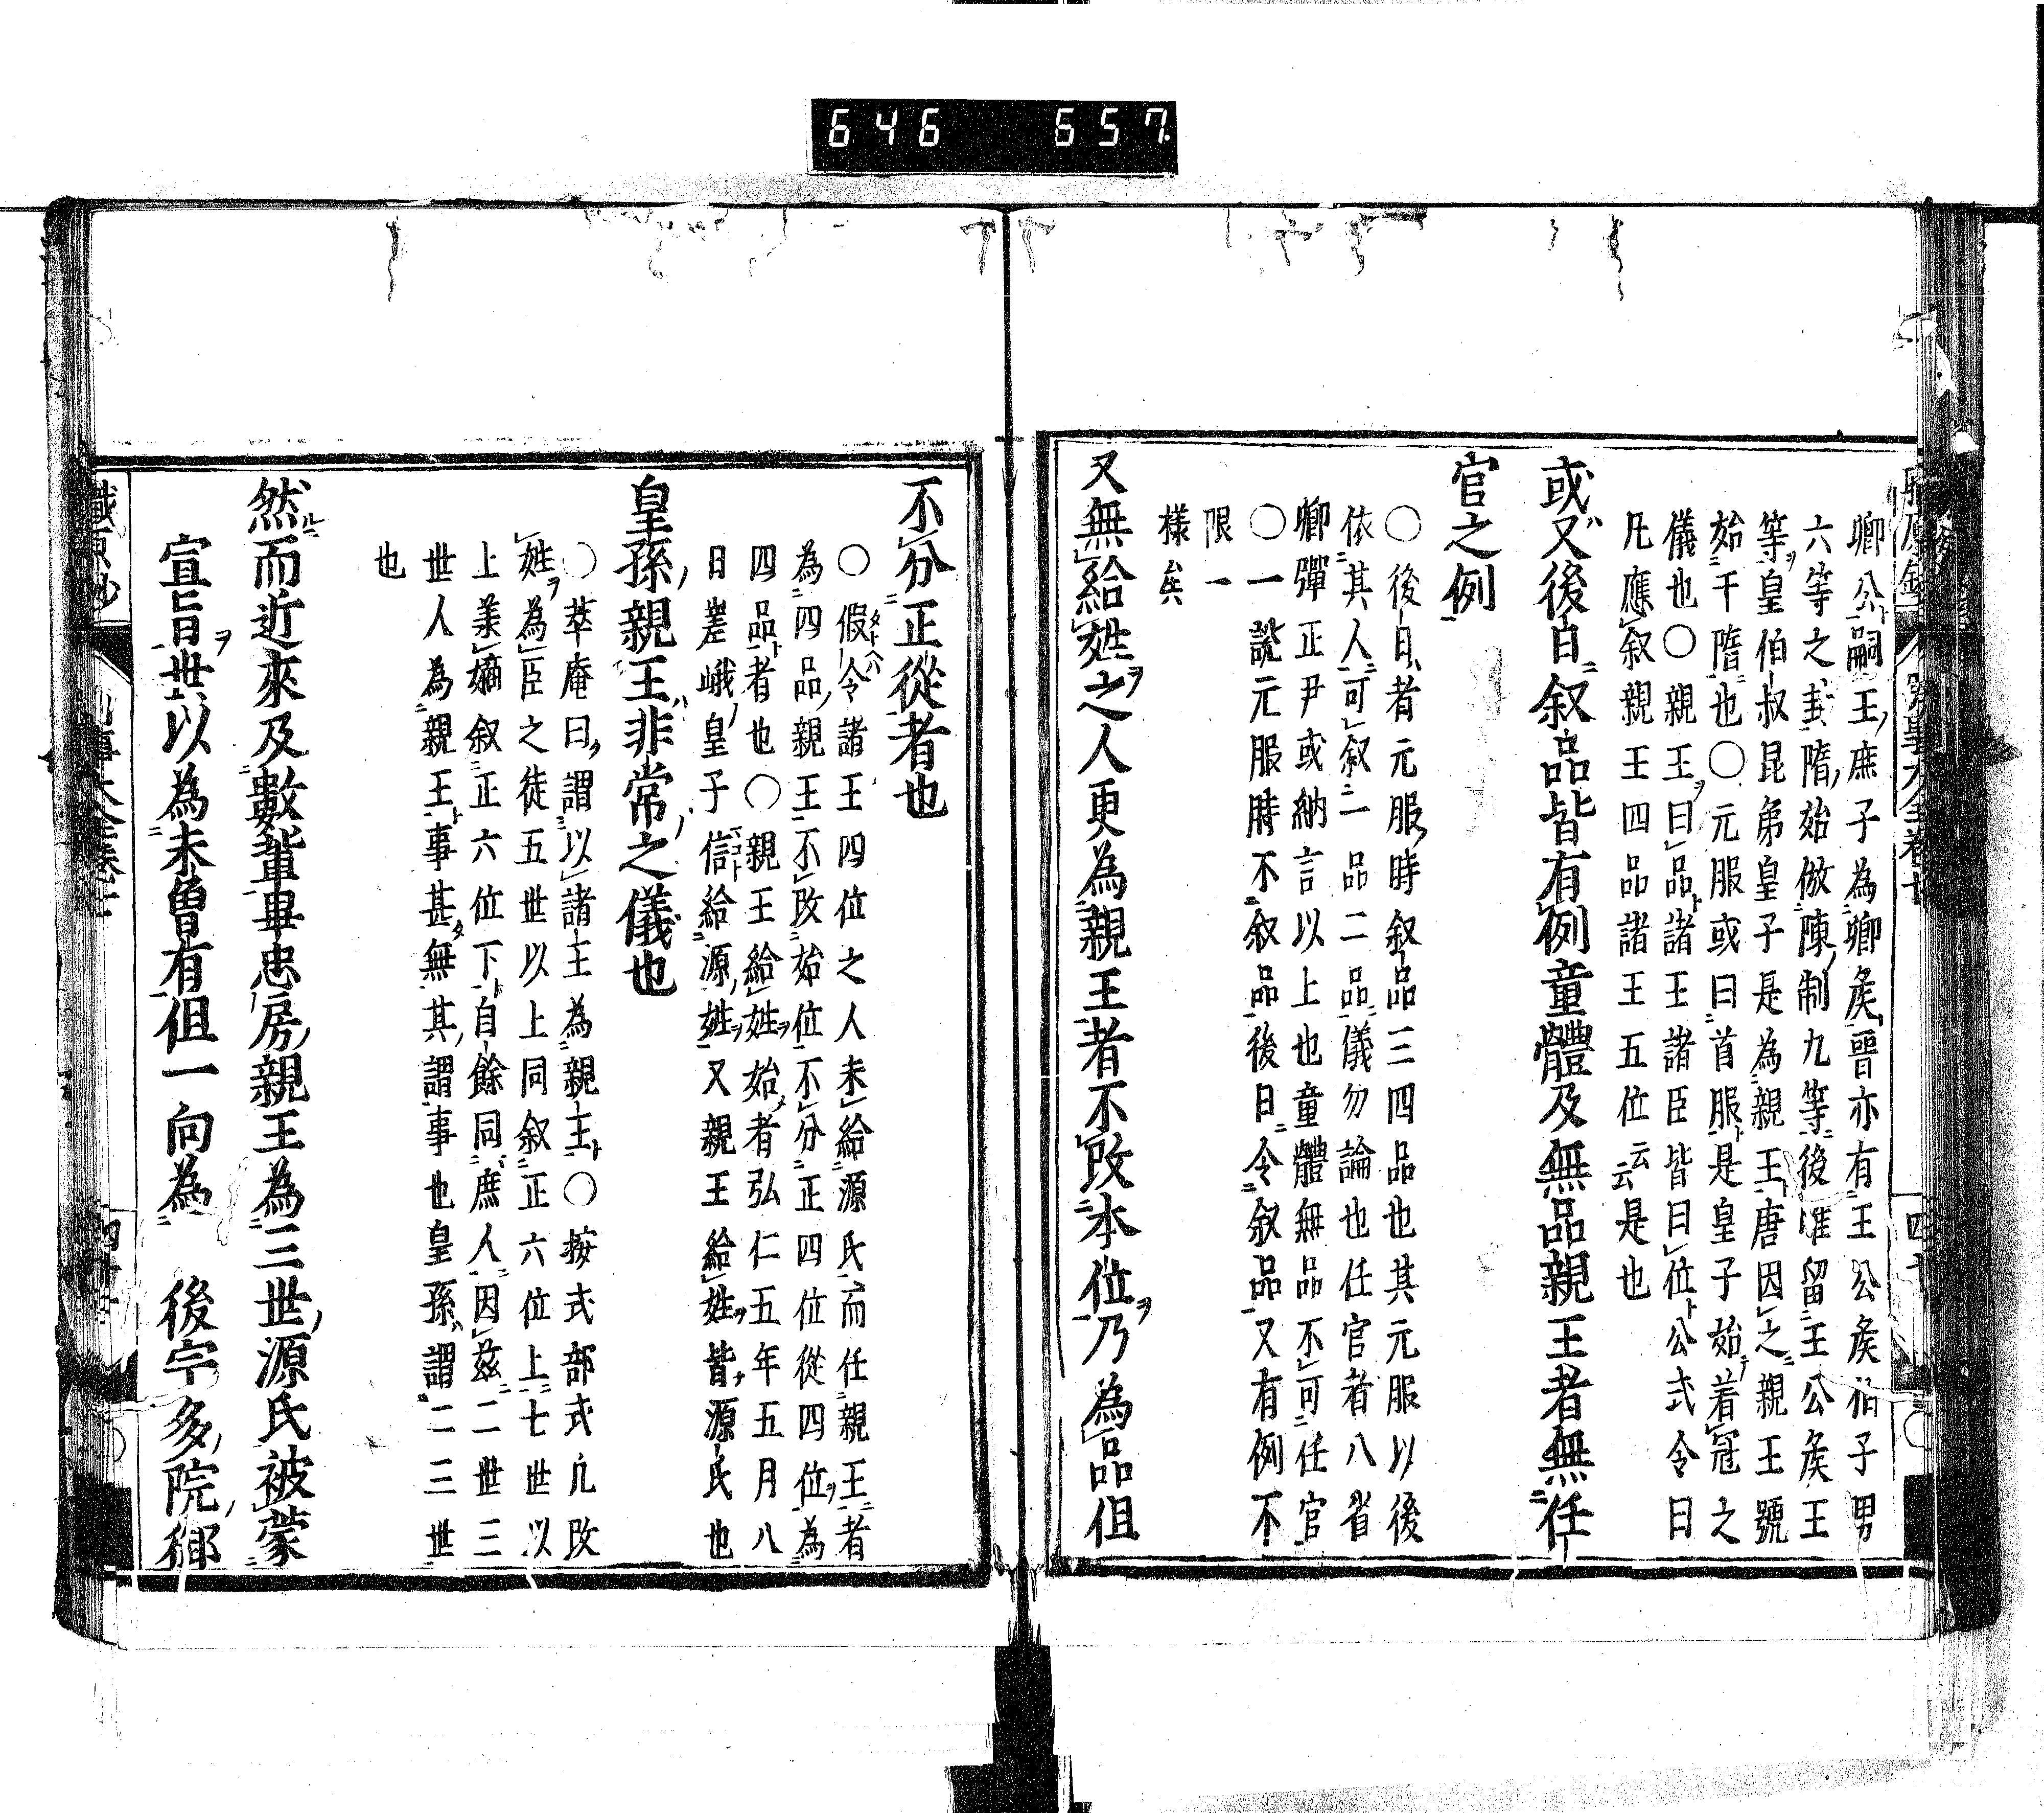 646 657
卿公嗣王庶子為卿矦晉亦有王公矦伯子男
六等之封隋始倣陳制九等後唯留王公矦王
等皇伯叔昆弟皇子是為親王唐因之親王號
始于隋也〇元服或曰首服是皇子始着冠之
儀也〇親王曰品諸王諸臣皆曰位公式令曰
凡應叙親王四品諸王五位云云是也
或又後日叙品皆有例童體及無品親王者無任
官之例
〇後日者元服時叙品三四品也其元服以後
依其人可叙一品二品儀勿論也任官者八省
卿彈正尹或納言以上也童體無品不可任官
〇一說元服時不叙品後日令叙品又有例不
限一
樣矣
又無給姓之人更為親王者不改本位乃為品但
不分正從者也
〇假令諸王四位之人未給源氏而任親王者
為四品親王不改始位不分正四位從四位為
四品者也〇親王給姓始者弘仁五年五月八
日嵳峨皇子信給源姓又親王給姓皆源氏也
皇孫親王非常之儀也
〇萃庵曰謂以諸王為親王〇按式部式凢改
姓為臣之徒五世以上同叙正六位上七世以
上美嫡叙正六位下自餘同庶人因茲二世三
世人為親王事甚無其謂事也皇孫謂二三世
也
然而近來及數輩畢忠房親王為三世源氏被蒙
宣旨世以為未曽有但一向為 後宇多院御